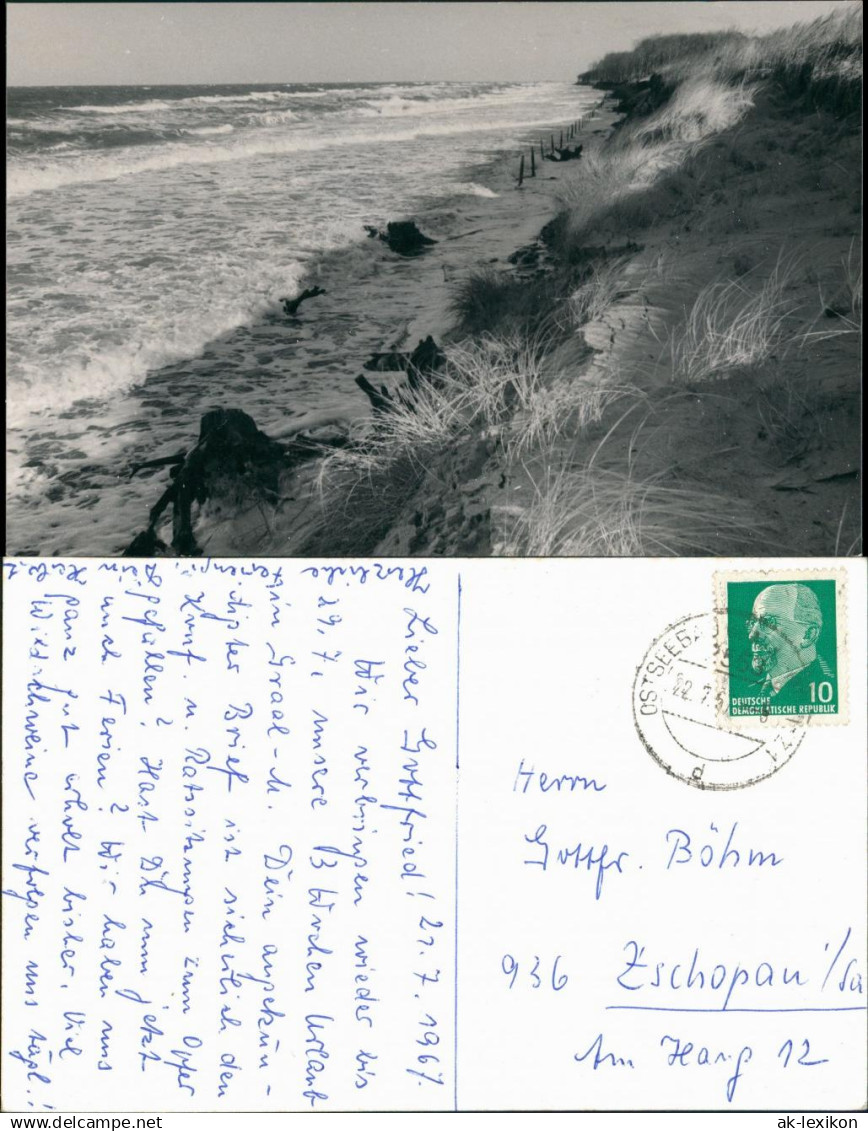 Lieber Gottfried! 21.7.1967.
Wir verbringen wieder bis
29.7. unsere 3 Wochen Urlaub
in Graal-M. Dein angekün-
digter Brief ist sicherlich den
Konf. u. Ratssitzungen zum Opfer
gefallen? Hast Du nun jetzt
auch Ferien? Wir haben uns
ganz gut erholt bisher. Viel
Wildschweine verfregen uns tägl.!
Herzliche
OSTSEEBAD
22.7.6
d
DEUTSCHE
DEMOKRATISCHE REPUBLIK
10
Herrn
Gottfr. Böhm
936 Zschopau/Sa
Am Hang 12
ak-lexikon